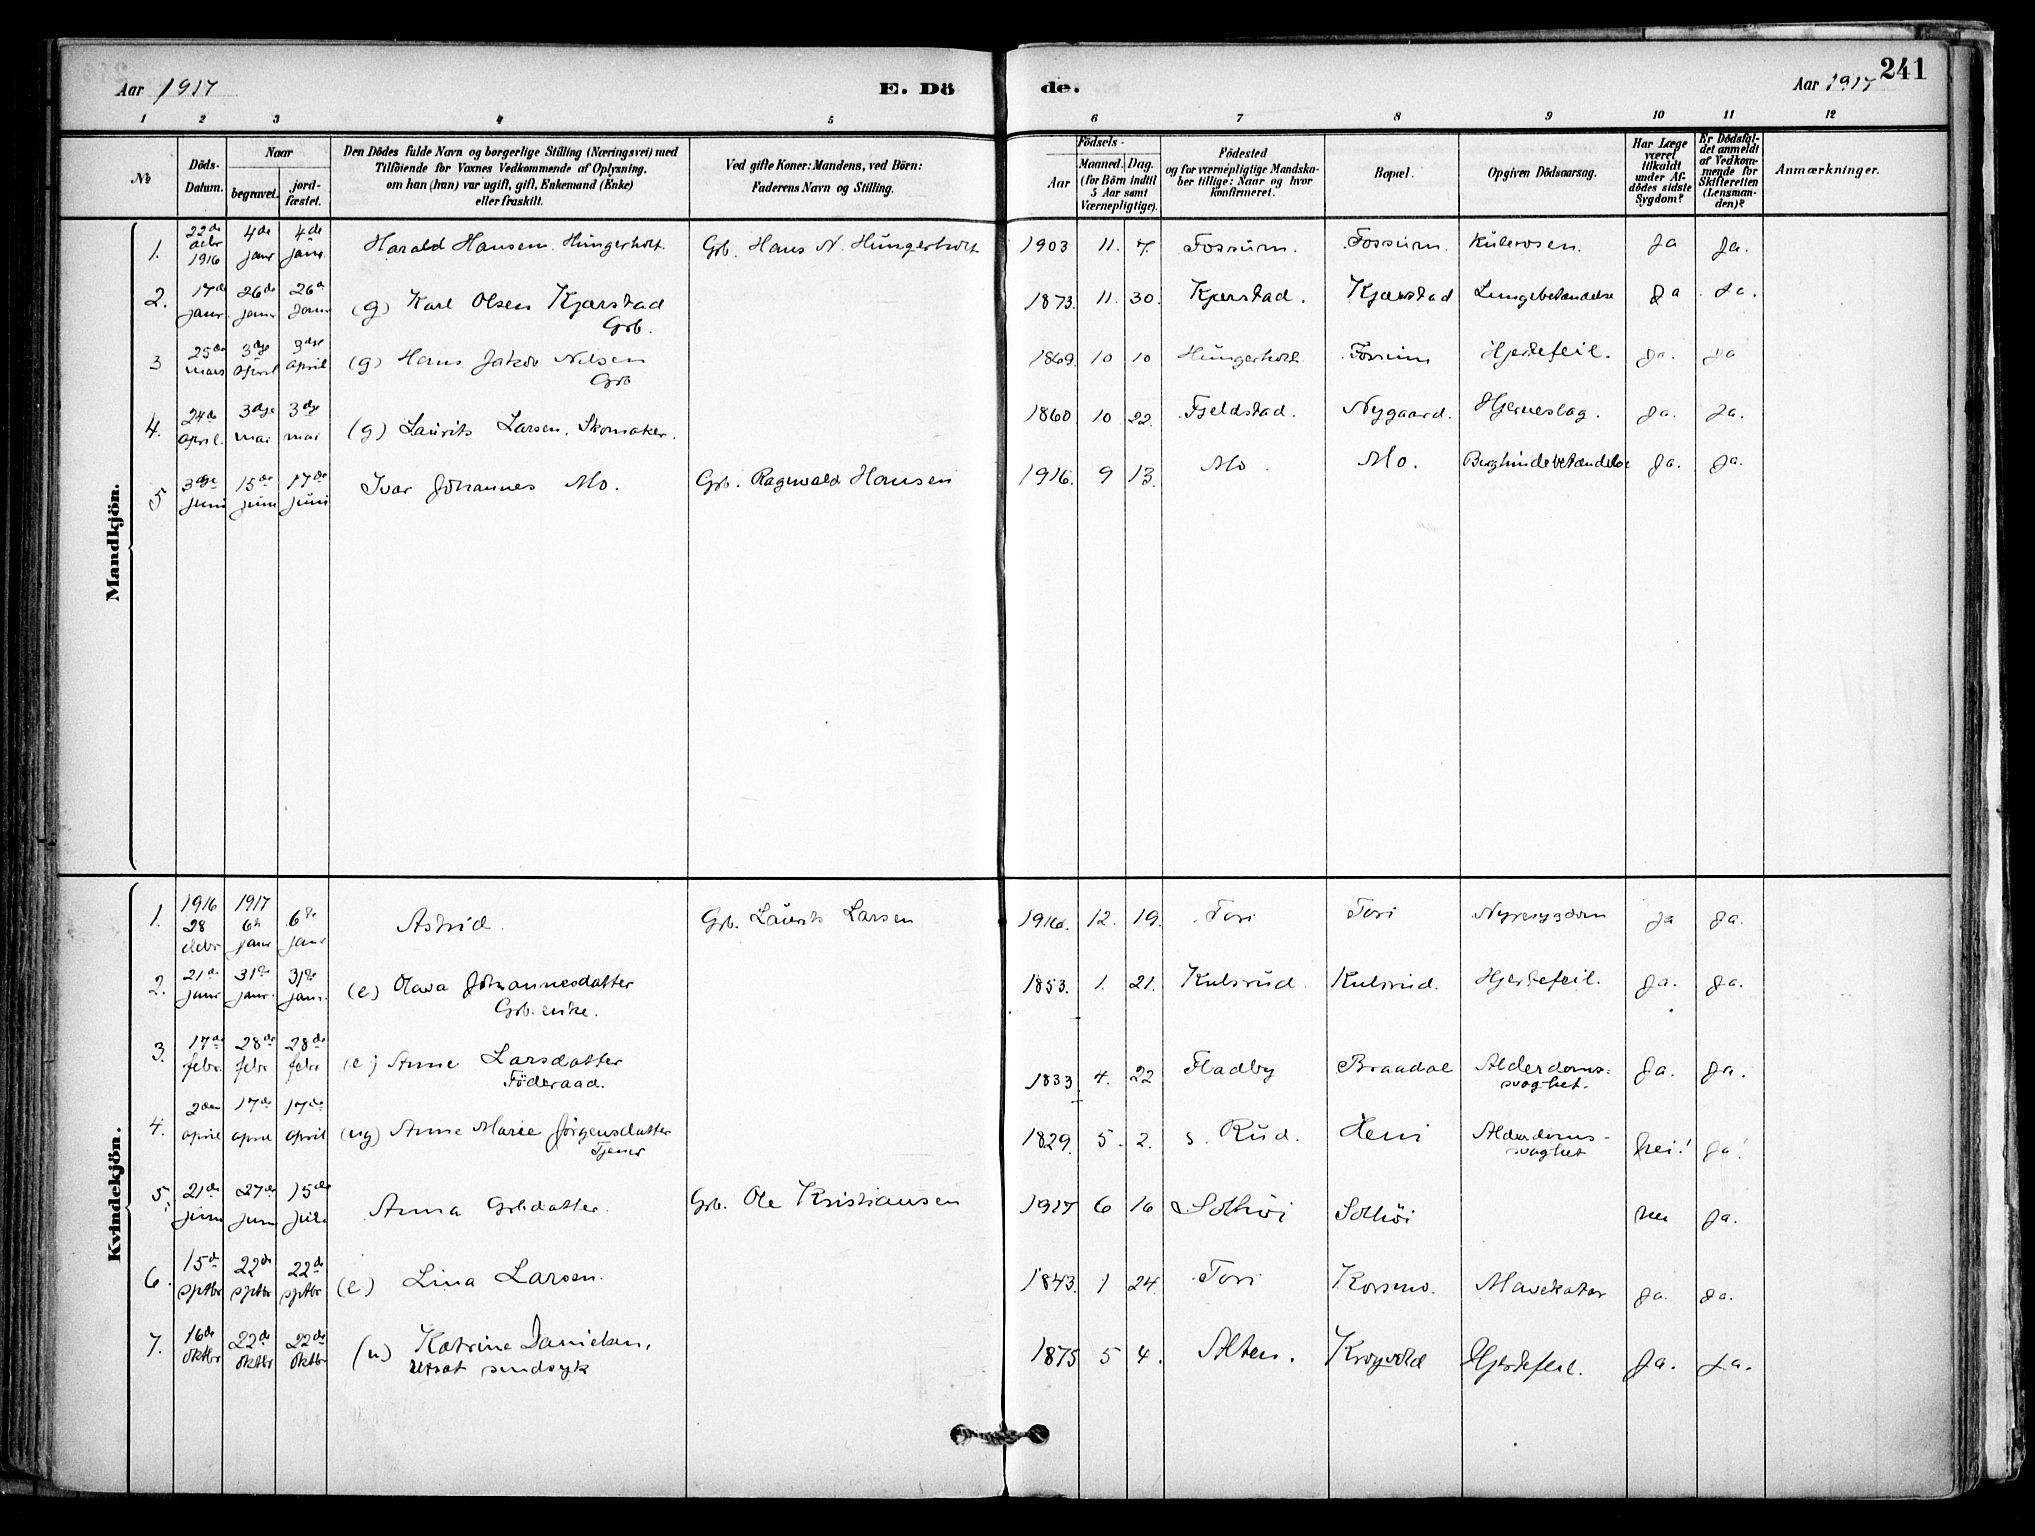 Aar 1917
E. Dö
de.
Aar 1917
241
1 2 3 4 5 6 7 8 9 10 11 12
№
Döds-Datum.
Naar
begravet.
jord-fæstet.
Den Dödes fulde Navn og borgerlige Stilling (Næringsvei) med
Tilföiende for Voxnes Vedkommende af Oplysning,
om han (hun) var ugift, gift, Enkemand (Enke)
eller fraskilt.
Ved gifte Koner: Mandens, ved Börn:
Faderens Navn og Stilling.
Födsels-
Aar
Maaned. Dag.
(for Börn indtil
5 Aar samt
Værnepligtige).
Födested
og for værnepligtige Mandska-
ber tillige: Naar og hvor
konfirmeret.
Bopæl.
Opgiven Dödsaarsag.
Har Læge
været
tilkaldt
under Af-
dödes sidste
Sygdom?
Er Dödsfal-
det anmeldt
af Vedkom-
mende for
Skifteretten
(Lensman-
den)?
Anmærkninger.
Mandkjön.
1. 22de debr 1916 4de janr 4de janr Harald Hansen Hungerholt Grb. Hans N. Hungerholt 1903 11. 7. Fossum. Fossum. Ja Ja.
2. 17de janr. 26de janr 26de janr (g) Karl Olsen Kjærstad Grb. 1873. 11. 30. Kjærstad. Kjærstad Lungebetændelse Ja Ja.
3 25de mars 3dje april 3dje april (g) Hans Jakob Nilsen Grb 1869. 10 10 Hungerholt Fossum Hjertefeil. Ja. Ja
4. 24de april. 3dje mai 3dje mai (g) Laurits Larsen, Skomaker. 1860 10 22. Fjeldstad. Nygaard. Hjerneslag. Ja. Ja.
5 3dje juni 15de juni 17de juni Ivar Johannes Mo. Grb. Ragnvald Hansen 1916. 9 13. Mo. Mo. Ja. Ja.
Kvindekjön.
1. 1916 28 debr 1917 6te janr 6te janr Astrid. Grb. Laurits Larsen 1916. 12. 19. Tori Tori Nyresygdom Ja Ja.
2. 21de janr 31te janr. 31te janr. (e) Olava Johannesdatter Grb. enke. 1853. 1. 21. Kulsrud. Kulsrud. Hjertefeil. Ja. Ja.
3. 17de febr. 28de febr 28de febr (e) Anne Larsdatter Föderaad. 1833 4. 22 Fladby Braadal Alderdoms-svaghet. Ja. Ja.
4. 2den april 17de april 17de april (ug) Anne Marie Jörgensdatter Tjener 1829. 5. 2. s. Rud. Heni Alderdoms-svaghet nei! Ja!
5. 21de juni 27de juni 15de juli Anna Grbdatter. Grb. Ole Kristiansen 1917 6 16 Solhöi Solhöi nei Ja.
6. 15de sptbr 22de sptbr 22de sptbr (e) Lina Larsen. 1843. 1 24. Tori Korsmo. Mavekatar Ja. Ja.
7. 16de oktbr 22de oktbr 22de oktbr (u) Katrine Danielsen, utsat sindsyk 1875 5 4. Alten. Hjertefeil. Ja. Ja.